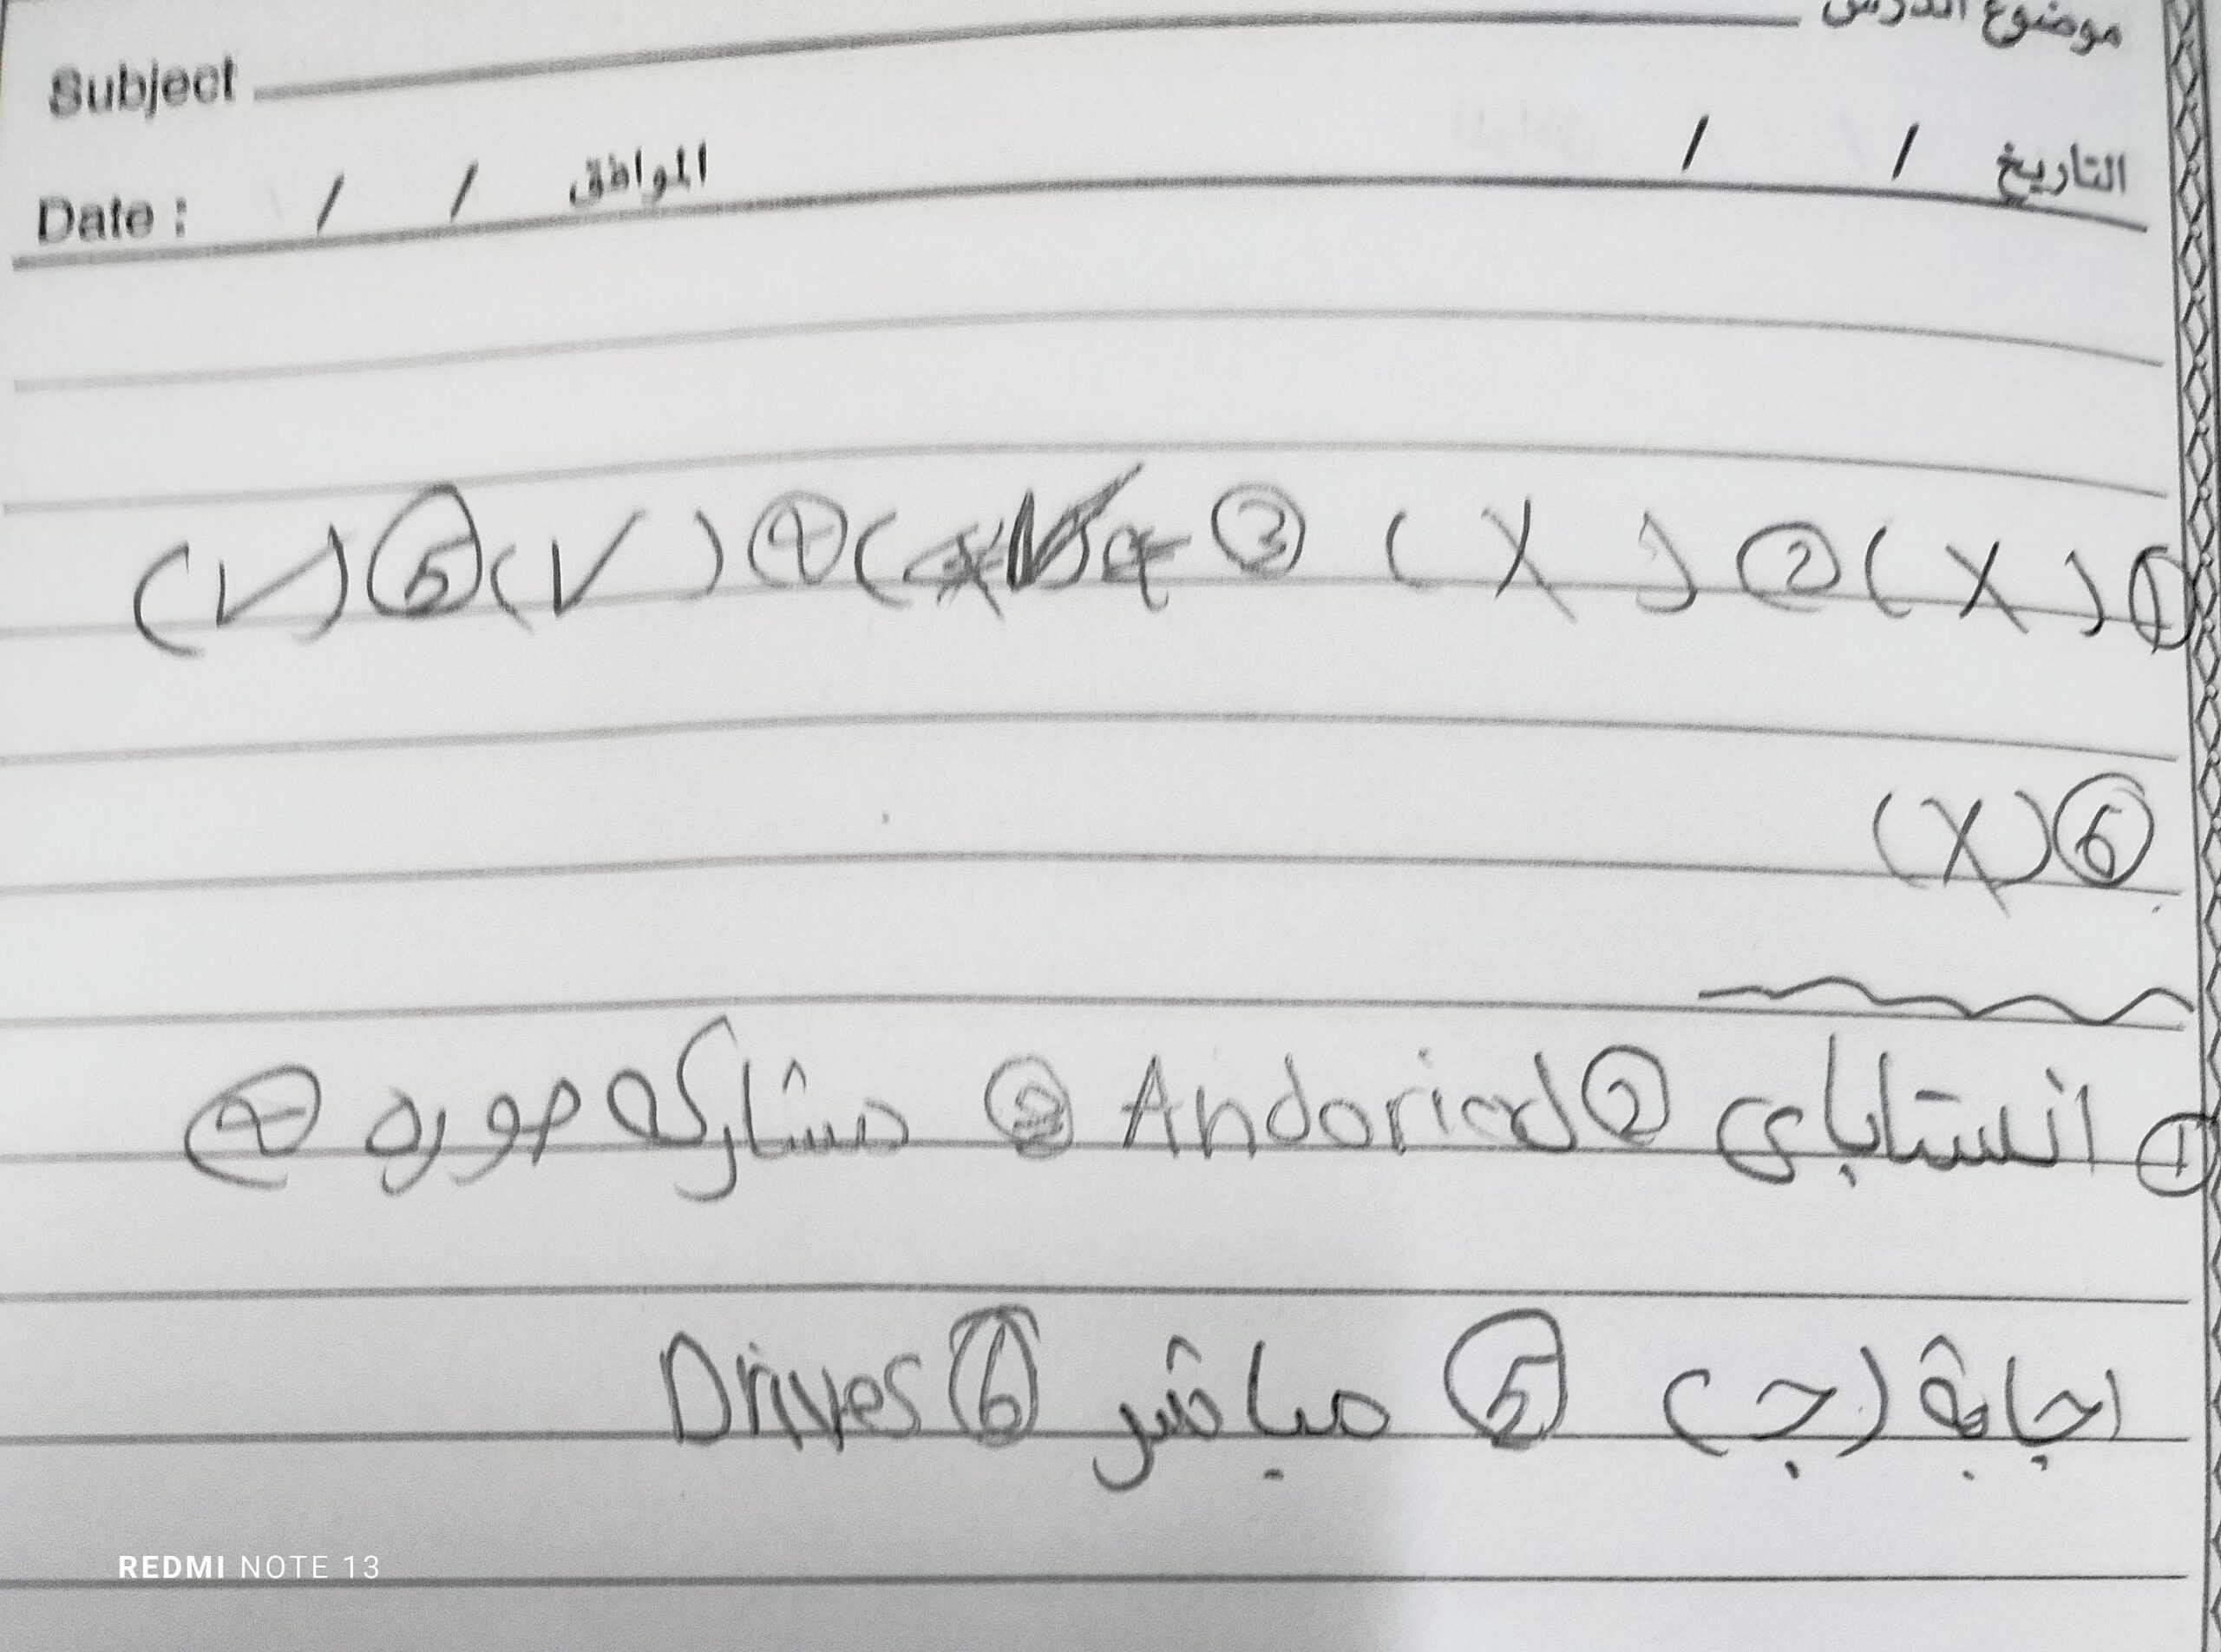 موضوع الدرس Subject
التاريخ / / الموافق / / Date :
① (X) ② (X) ③ ( ④ (√) ⑤ (√)
⑥ (X)
① انستاباي ② Andoriod ③ مشاركه صوره ④
اجابة (ج) ⑤ مباشر ⑥ Drives
REDMI NOTE 13